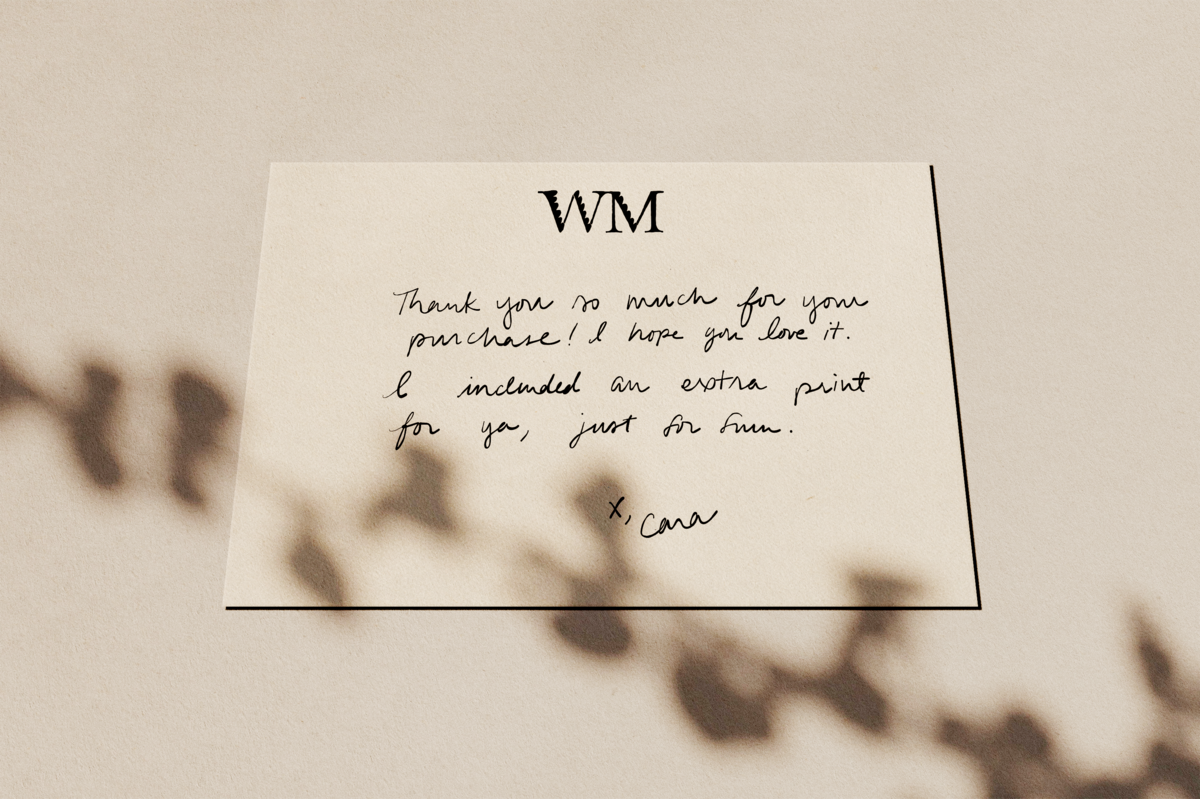 WM
Thank you so much for your
purchase! I hope you love it.
I included an extra print
for ya, just for fun.
x, Cara